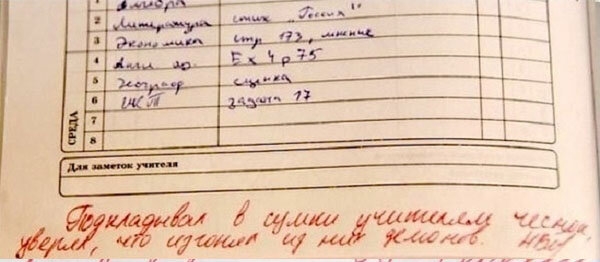 1 Алгебра
2 Литература стих „Россия"
3 Экономика стр 173, мнение
4 Англ яз. Ex 4 p 75
5 географ сценка
6 задача 17
7
8
СРЕДА
Для заметок учителя
Подкладывал в сумки учителям чеснок,
уверял, что изгонял из них демонов.